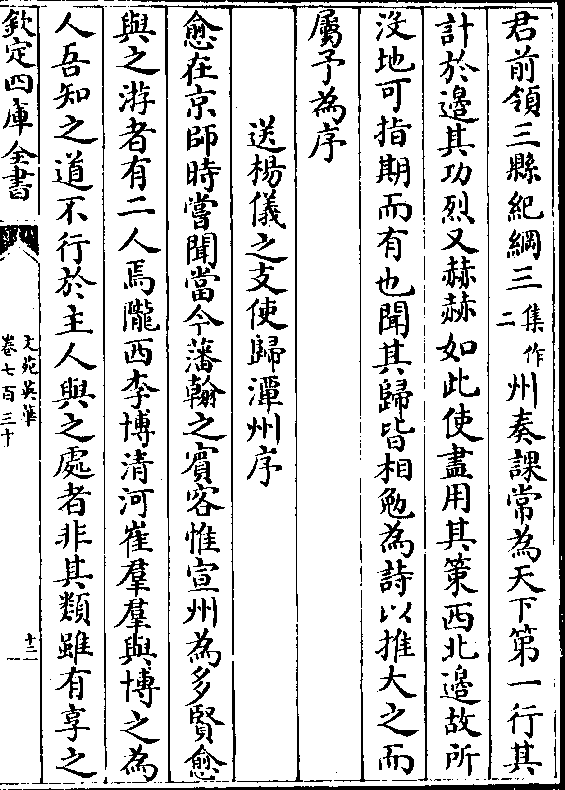 君前領三縣紀綱三集作二州奏課常為天下第一行其
計於邊其功烈又赫赫如此使盡用其策西北邊故所
没地可指期而有也聞其歸皆相勉為詩以推大之而
屬予為序
送楊儀之支使歸潭州序
愈在京師時嘗聞當今藩翰之賓客惟宣州為多賢愈
與之游者有二人焉隴西李博清河崔羣羣與博之為
人吾知之道不行於主人與之處者非其類雖有享之
欽定四庫全書
文苑英華
卷七百三十
十二